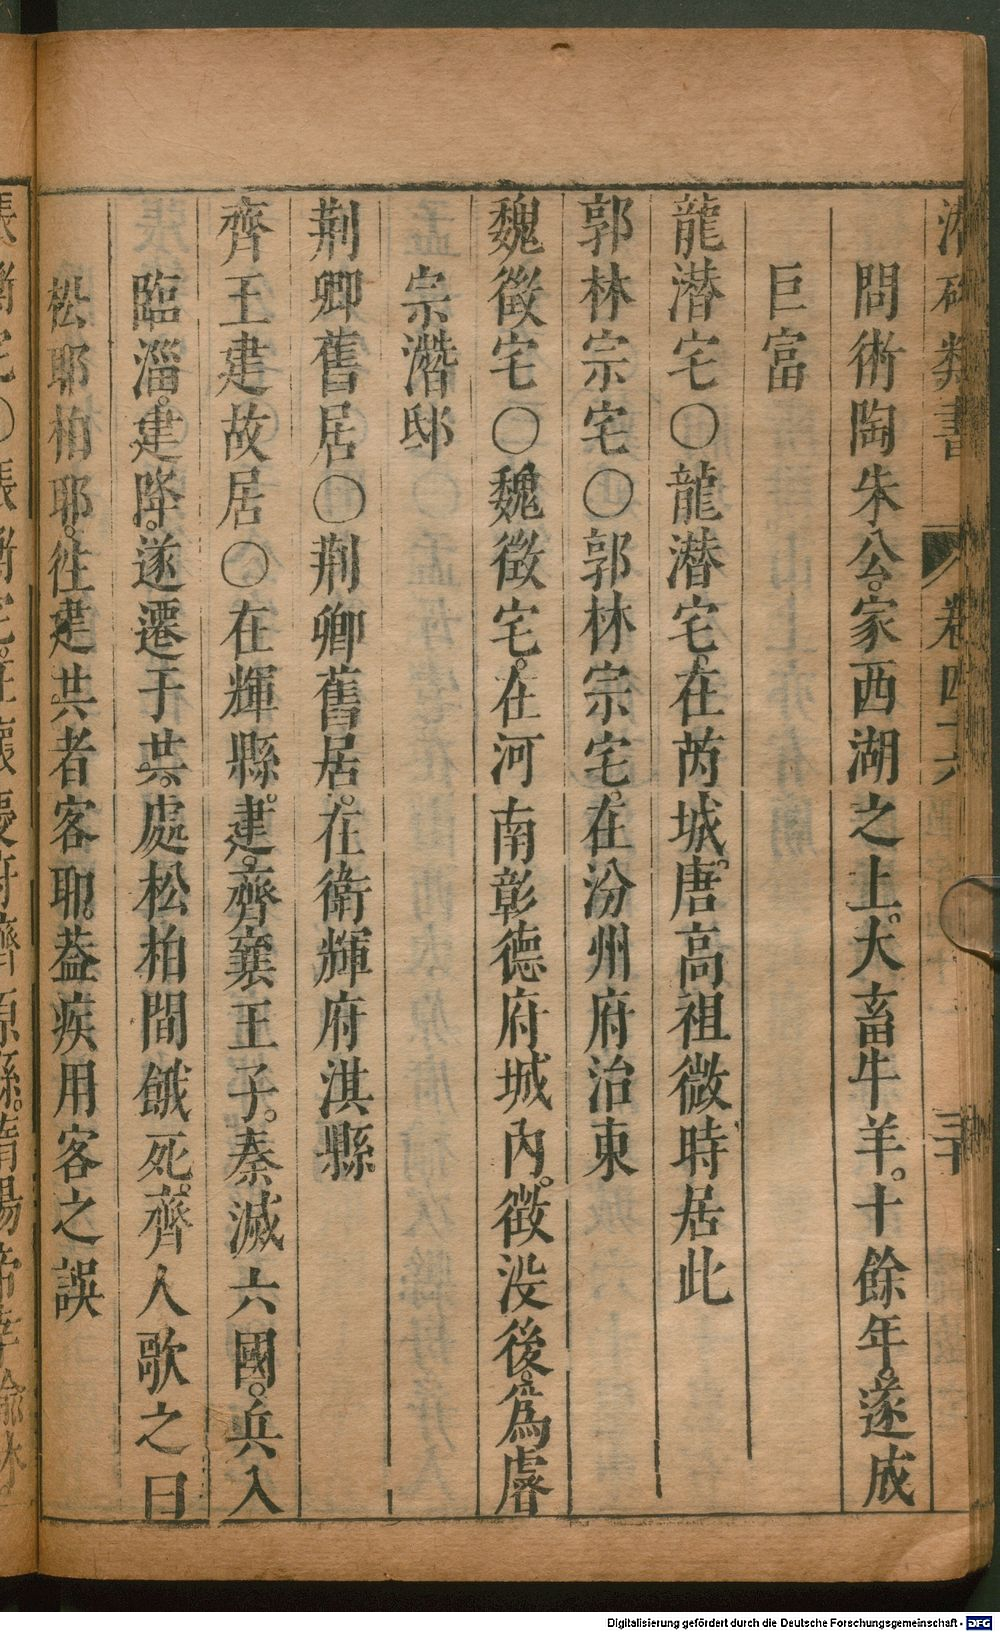 潛確類書 卷四十六 三十
問術陶朱公。家西湖之上。大畜牛羊。十餘年。遂成
巨富
龍潜宅○龍潜宅。在芮城。唐高祖微時居此
郭林宗宅○郭林宗宅。在汾州府治東
魏徵宅○魏徵宅。在河南彰德府城內。徵没後。爲睿
宗潛邸
荆卿舊居○荆卿舊居。在衛輝府淇縣
齊王建故居○在輝縣。建。齊襄王子。秦滅六國。兵入
臨淄。建降。遂遷于共。處松柏間餓死。齊人歌之曰
松耶柏耶。徃建共者客耶。葢疾用客之誤
張衡宅○張衡宅。在懷慶府濟源縣。隋煬帝幸
Digitalisierung gefördert durch die Deutsche Forschungsgemeinschaft - DFG